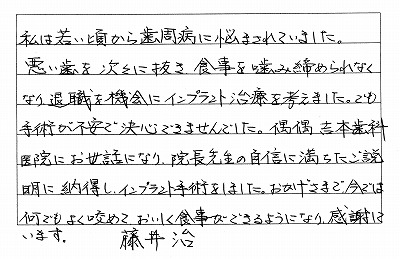 私は若い頃から歯周病に悩まされていました。
悪い歯を次々に抜き、食事を噛み締められなく
なり退職を機会にインプラント治療を考えました。でも
手術が不安で決心できませんでした。偶偶吉本歯科
医院にお世話になり、院長先生の自信に満ちたご説
明に納得し、インプラント手術をしました。おかげさまで今では
何でもよく咬めておいしく食事ができるようになり、感謝して
います。 藤井治